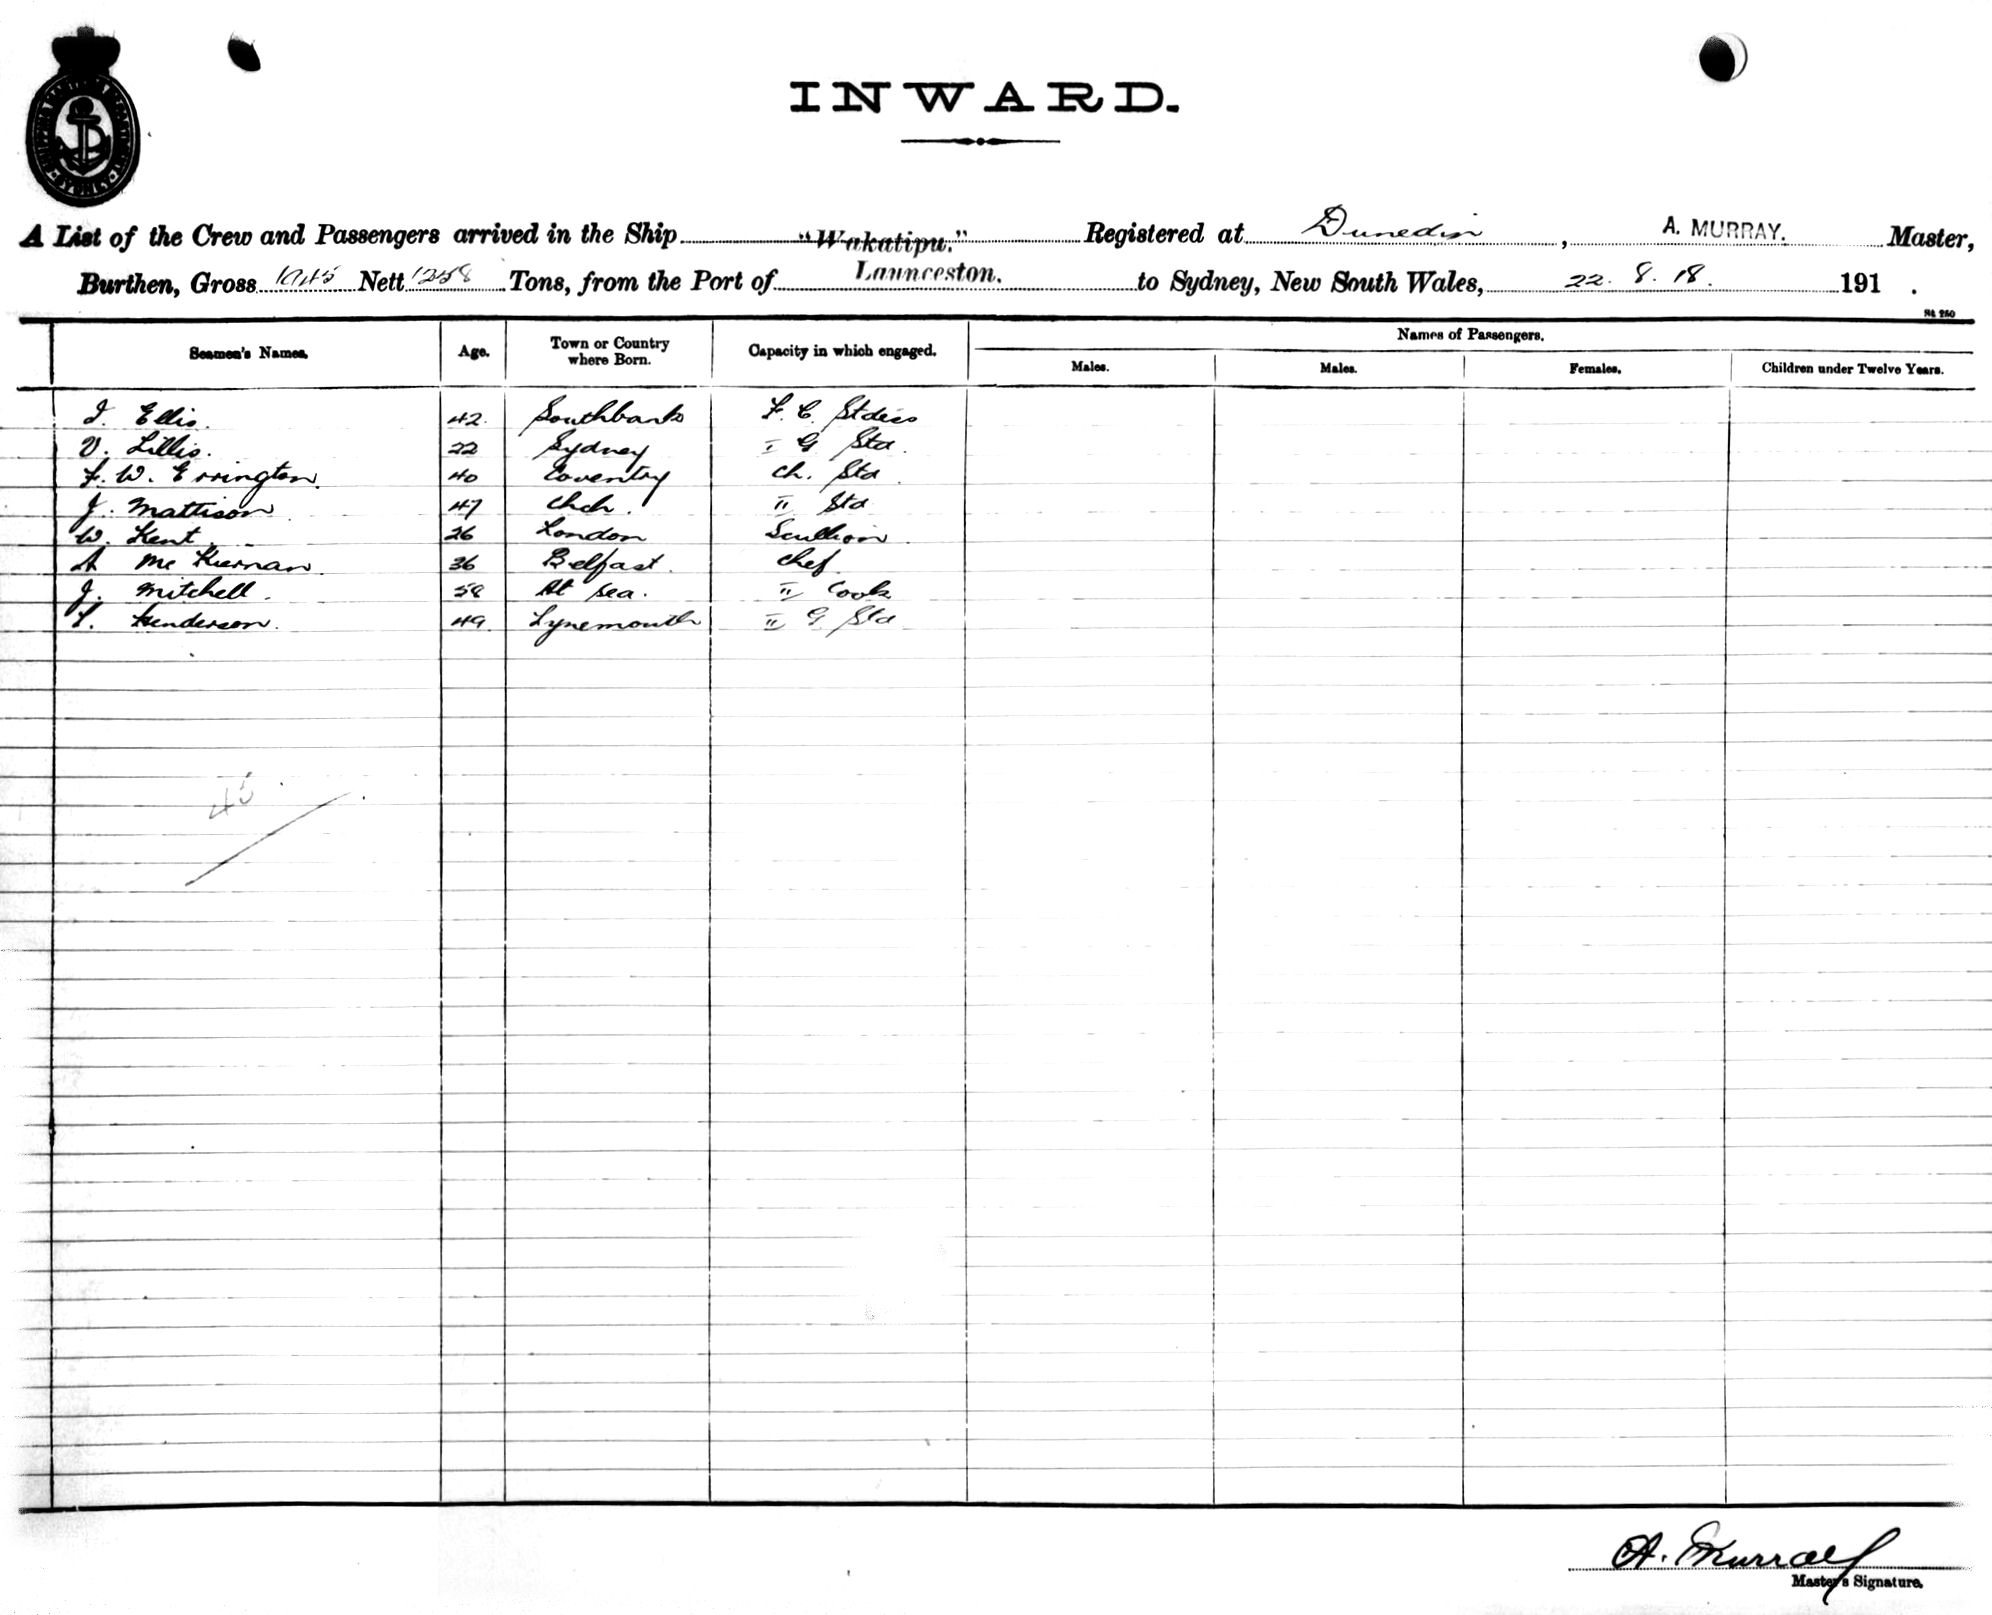 INWARD.
SHIPPING MASTER'S DEPARTMENT SYDNEY
A List of the Crew and Passengers arrived in the Ship "Wakatipu." Registered at Dunedin, A. MURRAY. Master,
Burthen, Gross 1945 Nett 1258 Tons, from the Port of Launceston. to Sydney, New South Wales, 22. 8. 18. 191 .
Seamen's Names. Age. Town or Country where Born. Capacity in which engaged. Names of Passengers.
Males. Males. Females. Children under Twelve Years.
I. Ellis. 42. Southbank F. C. Stdess
V. Lillis. 22 Sydney I G Std.
F. W. Errington. 40 Coventry Ch. Std.
J. Mattison 47 Chch. II Std
W. Kent. 26 London Scullion.
A McKiernan. 36 Belfast. Chef.
J. Mitchell. 58 At Sea. II Cook
T. Henderson. 49. Lynemouth II G Std
45
A. Murray
Master's Signature.